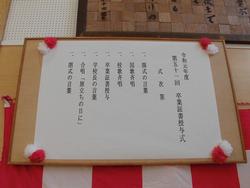 令和元年度
第五十一回 卒業証書授与式
式次第
一、開式の言葉
一、国歌斉唱
一、校歌斉唱
一、卒業証書授与
一、学校長の言葉
一、合唱「旅立ちの日に」
一、閉式の言葉